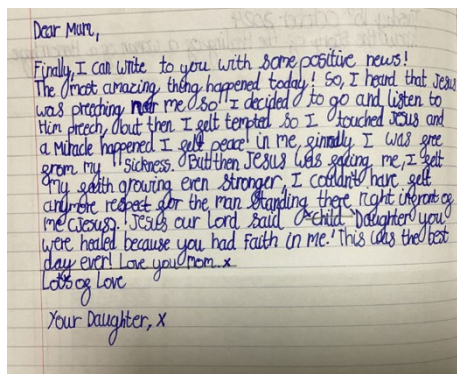 Dear Mum,
Finally, I can write to you with some positive news!
The most amazing thing happened today! So, I heard that Jesus
was preaching near me so I decided to go and listen to
Him preech, but then I felt tempted so I touched Jesus and
a Miracle happened I felt peace in me, finally I was free
from my sickness. But then Jesus was facing me, I felt
my faith growing even stronger, I couldn't have felt
anymore respect for the man standing there right infront of
me (Jesus). 'Jesus our Lord said Daughter you
were healed because you had Faith in me.' This was the best
day ever! Love you mom.x
Lots of Love
Your Daughter, x